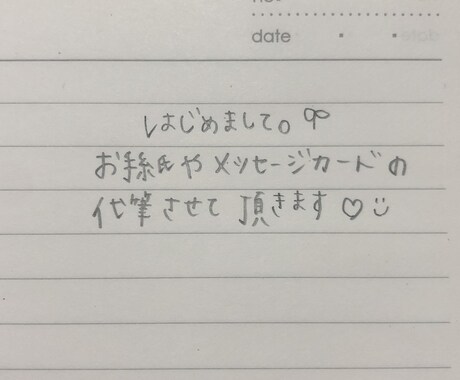 date
はじめまして。
お手紙やメッセージカードの
代筆させて頂きます♡